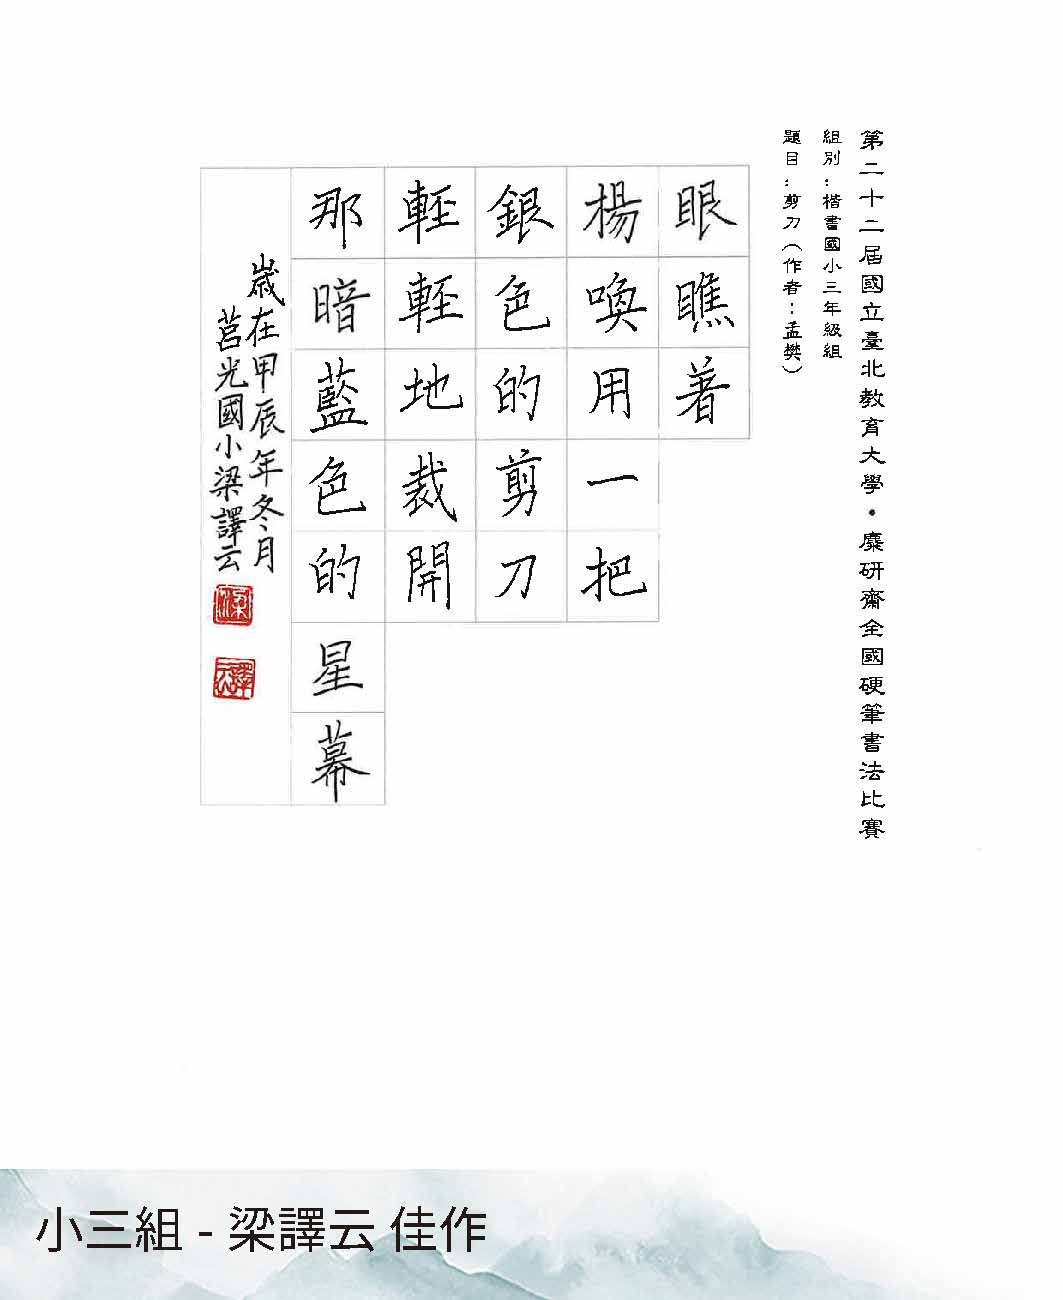 第二十二届國立臺北教育大學・麋研齋全國硬筆書法比賽
組別：楷書國小三年級組
題目：剪刀（作者：孟樊）
眼瞧著
楊喚用一把
銀色的剪刀
輕輕地裁開
那暗藍色的星幕
歲在甲辰年冬月
莒光國小梁譯云
梁
譯云
小三組 - 梁譯云 佳作